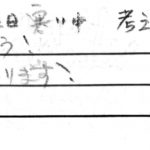 日寒い中 考え
う!
ります!